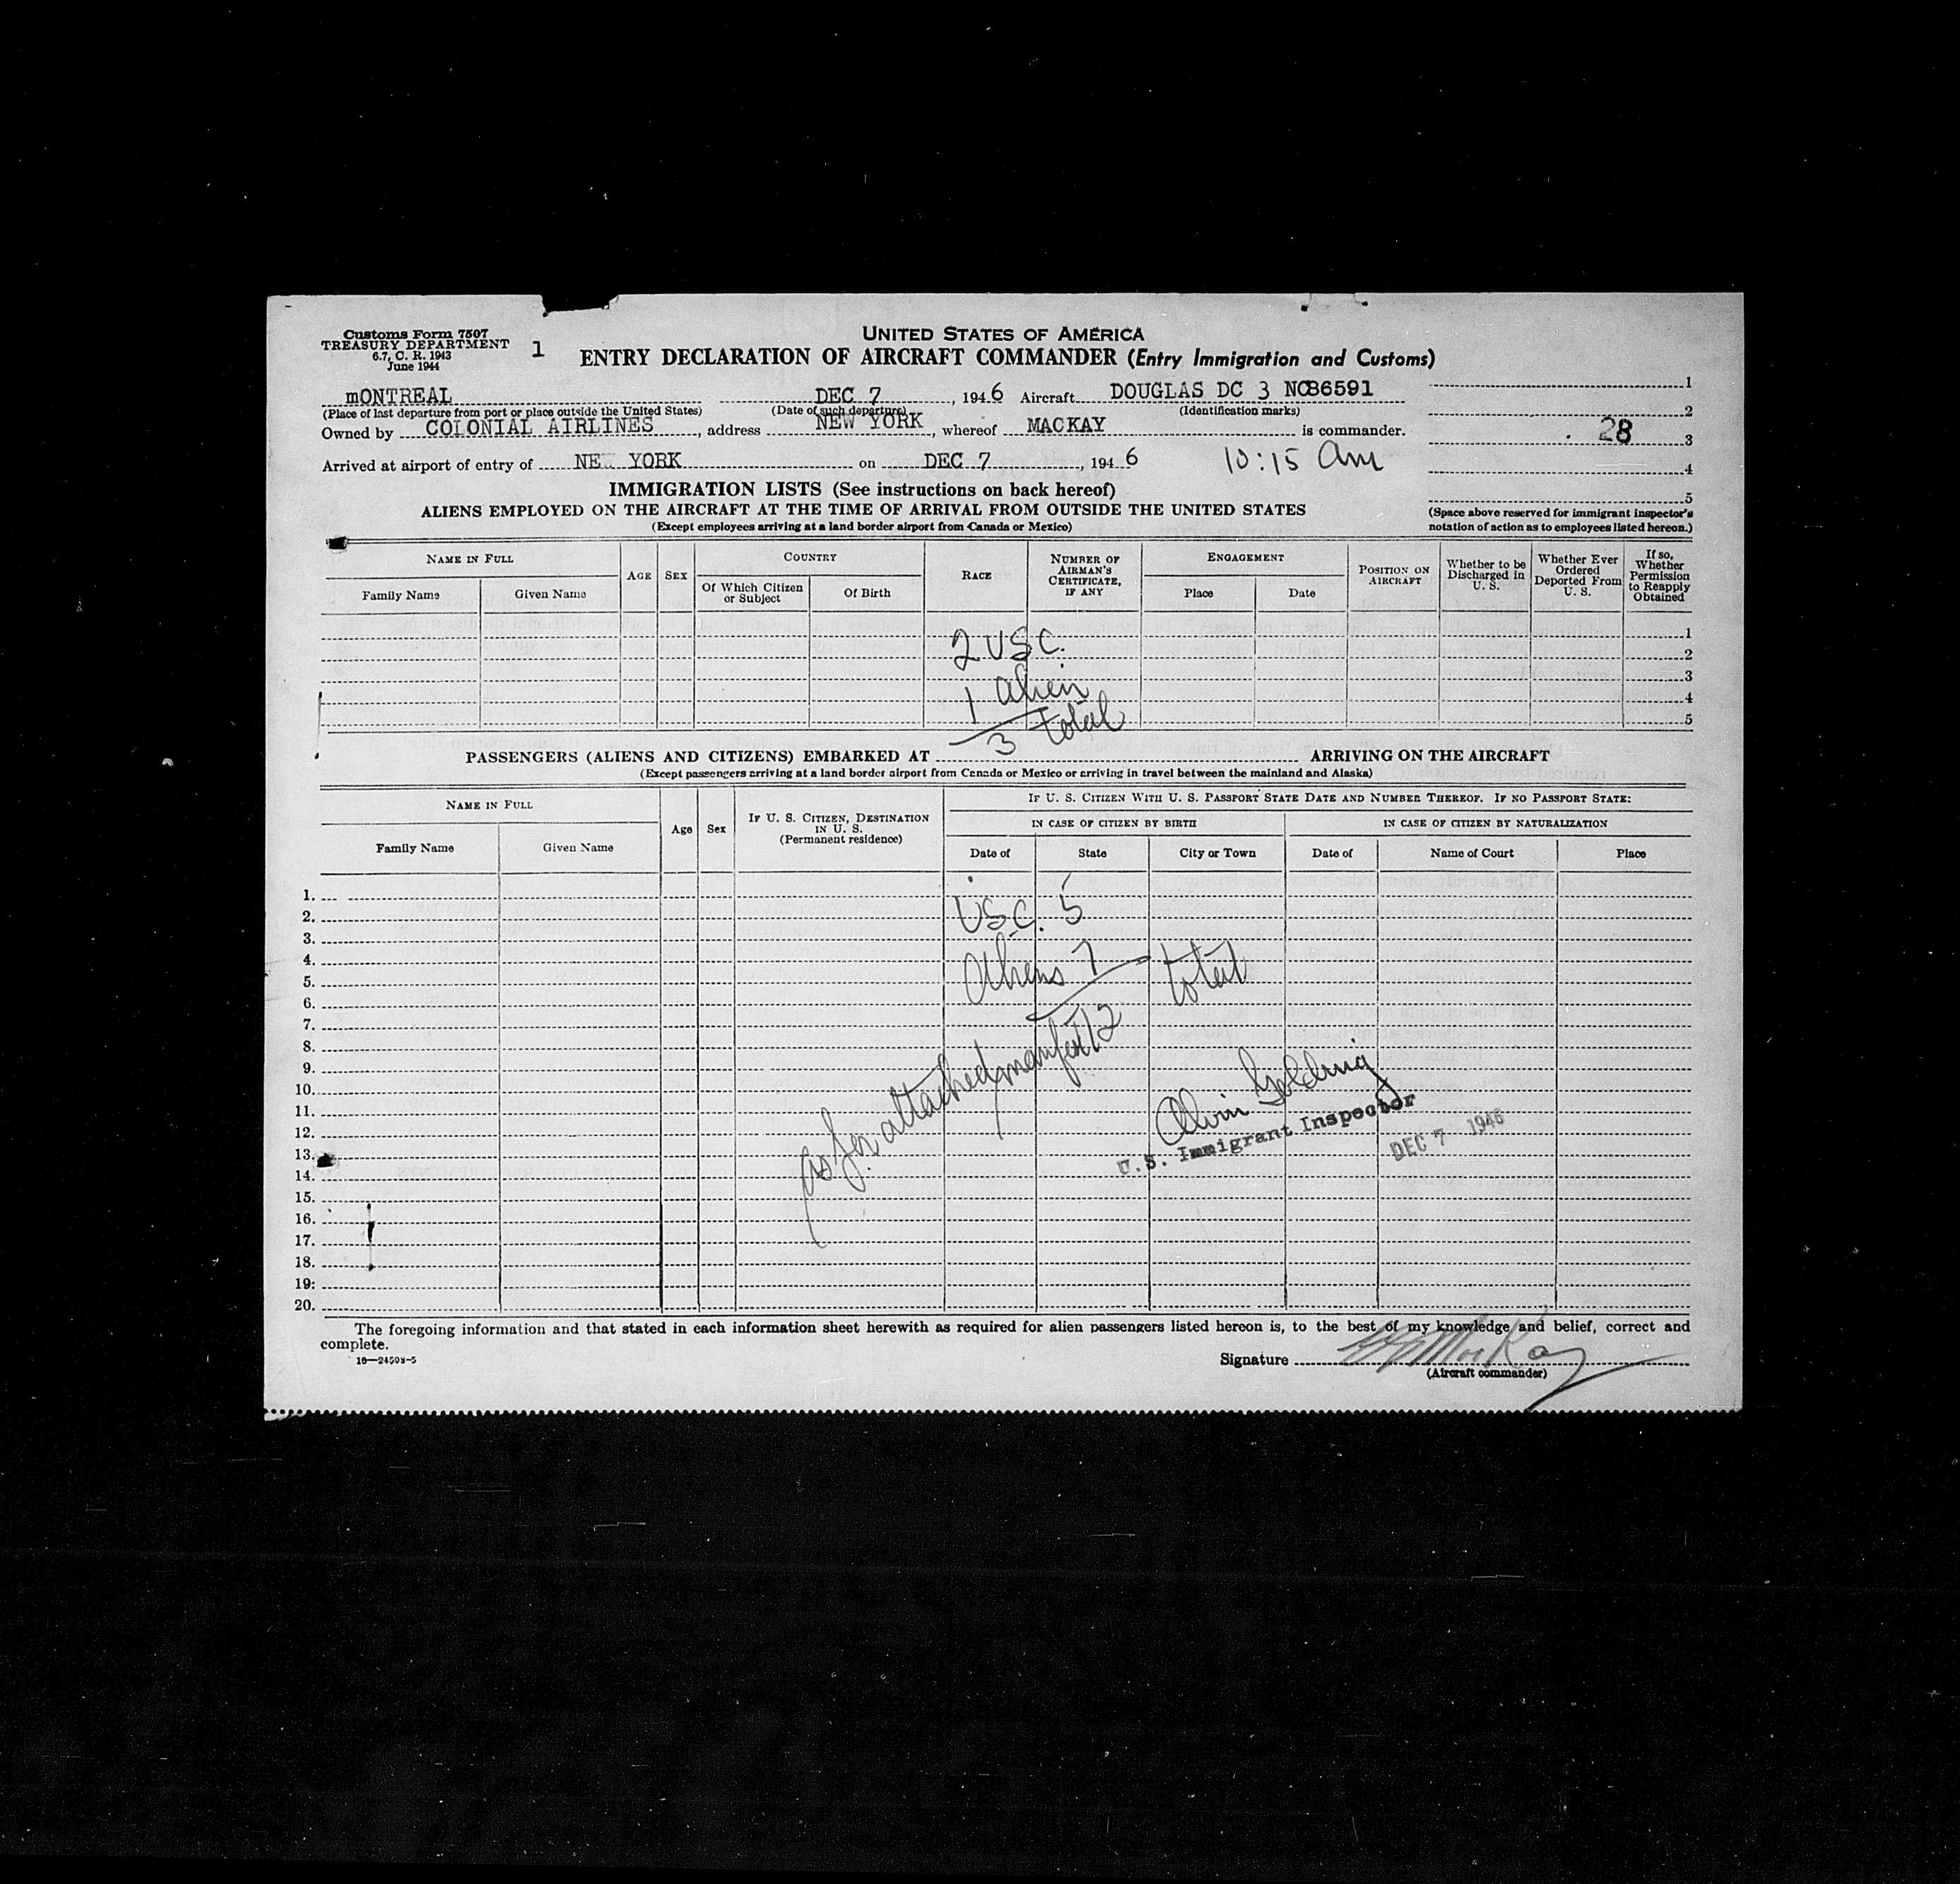 Customs Form 7507
TREASURY DEPARTMENT
6.7, C. R. 1943
June 1944
1
UNITED STATES OF AMERICA
ENTRY DECLARATION OF AIRCRAFT COMMANDER (Entry Immigration and Customs)
mONTREAL DEC 7, 1946 Aircraft DOUGLAS DC 3 NC86591 1
(Place of last departure from port or place outside the United States) (Date of such departure) (Identification marks) 2
Owned by COLONIAL AIRLINES, address NEW YORK, whereof MACKAY is commander. 28 3
Arrived at airport of entry of NE YORK on DEC 7, 1946 10:15 am 4
IMMIGRATION LISTS (See instructions on back hereof) 5
ALIENS EMPLOYED ON THE AIRCRAFT AT THE TIME OF ARRIVAL FROM OUTSIDE THE UNITED STATES
(Except employees arriving at a land border airport from Canada or Mexico)
(Space above reserved for immigrant inspector's
notation of action as to employees listed hereon.)
NAME IN FULL
Family Name
Given Name
AGE
SEX
COUNTRY
Of Which Citizen
or Subject
Of Birth
RACE
NUMBER OF
AIRMAN'S
CERTIFICATE,
IF ANY
ENGAGEMENT
Place
Date
POSITION ON
AIRCRAFT
Whether to be
Discharged in
U. S.
Whether Ever
Ordered
Deported From
U. S.
If so,
Whether
Permission
to Reapply
Obtained
1
2 USC. 2
1 alien 3
4
3 total 5
PASSENGERS (ALIENS AND CITIZENS) EMBARKED AT ARRIVING ON THE AIRCRAFT
(Except passengers arriving at a land border airport from Canada or Mexico or arriving in travel between the mainland and Alaska)
NAME IN FULL
Family Name
Given Name
Age
Sex
IF U. S. CITIZEN, DESTINATION
IN U. S.
(Permanent residence)
IF U. S. CITIZEN WITH U. S. PASSPORT STATE DATE AND NUMBER THEREOF. IF NO PASSPORT STATE:
IN CASE OF CITIZEN BY BIRTH
IN CASE OF CITIZEN BY NATURALIZATION
Date of
State
City or Town
Date of
Name of Court
Place
1.
2. USC. 5
3.
4.
5. Aliens 7 total
6.
7. 12
8.
9.
10. as per attached manifest
11. Alvin Golding
12. U.S. Immigrant Inspector
13. DEC 7 1946
14.
15.
16.
17.
18.
19.
20.
The foregoing information and that stated in each information sheet herewith as required for alien passengers listed hereon is, to the best of my knowledge and belief, correct and
complete.
16—24508-5
Signature MacKay
(Aircraft commander)